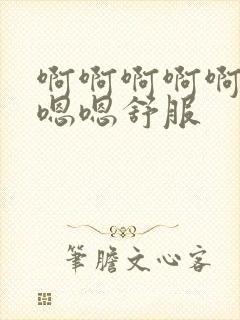 啊啊啊啊啊
嗯嗯舒服
筆膽文心客